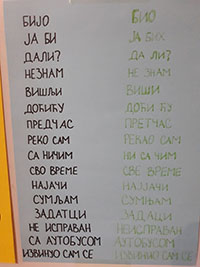 БИЈО БИО
ЈА БИ ЈА БИХ
ДАЛИ? ДА ЛИ?
НЕЗНАМ НЕ ЗНАМ
ВИШЉИ ВИШИ
ДОБИЋУ ДОБИ ЋУ
ПРЕДЧАС ПРЕТЧАС
РЕКО САМ РЕКАО САМ
СА НИЧИМ НИ СА ЧИМ
СВО ВРЕМЕ СВЕ ВРЕМЕ
НАЈАЧИ НАЈЈАЧИ
СУМЉАМ СУМЊАМ
ЗАДАТЦИ ЗАДАЦИ
НЕ ИСПРАВАН НЕИСПРАВАН
СА АУТОБУСОМ АУТОБУСОМ
ИЗВИНУО САМ СЕ ИЗВИНИО САМ СЕ